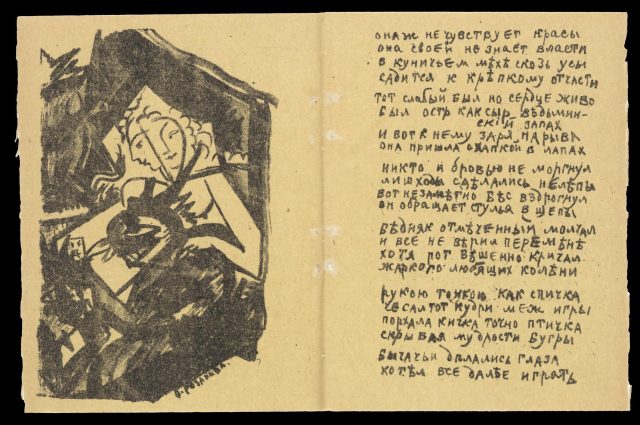 О. РОЗАНОВА.
она ж не чувствует красы
она своей не знает власти
в куничьем мѣхѣ сквозь усы
садится к крѣпкому отчасти
тот слабый был но сердце живо
был остр как сыр ведьмин-
ский запах
и вот к нему заря нарыва
она пришла охапкой в лапах
никто и бровью не моргнул
лишь ходы сдѣлались нелѣпы
вот незамѣтно бѣс вздрогнул
он обращает стулья в щепы
бѣдняк отмѣченный молчал
и все не вѣрил перемѣнѣ
хотя рот бѣшенно кричал
жарко любящих колѣни
рукою тонкою как спичка
чесал тот кудри меж игры
порхала кичка точно птичка
скрывая мудрости бугры
бычачьи дѣлались глаза
хотѣл все далѣе играть